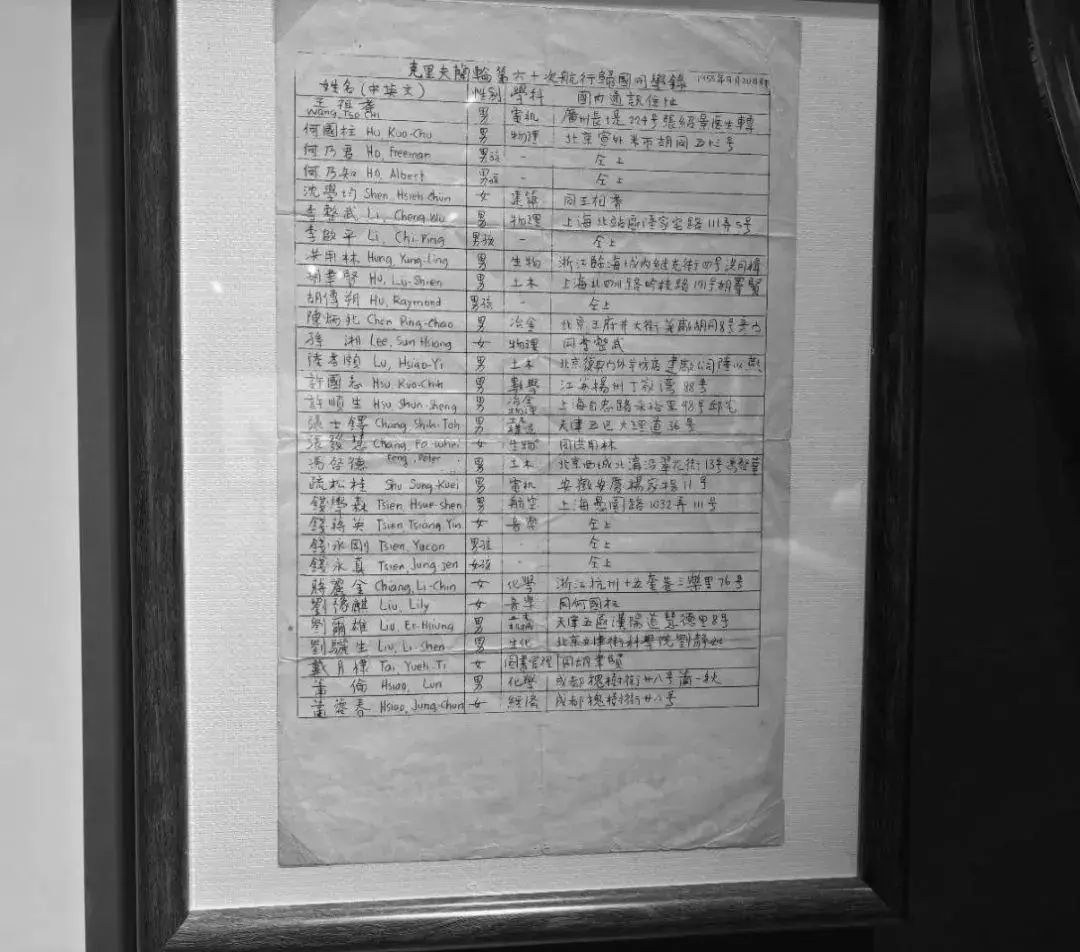 克里夫蘭輪第六十次航行歸國同學錄 1955年9月20日
姓名(中英文) 性别 學科 國内通訊住址
王祖耆 Wang, Tso Chi 男 電机 廣州長堤224号張紹景医生轉
何國柱 Ho Kuo-Chu 男 物理 北京宣外米市胡同五十三号
何乃君 Ho, Freeman 男孩 - 仝上
何乃知 Ho, Albert 男孩 - 仝上
沈學均 Shen, Hsieh Chun 女 建築 同王祖耆
李整武 Li, Cheng Wu 男 物理 上海北站區 家宅路111弄5号
李啟平 Li, Chi-Ping 男孩 - 仝上
洪用林 Hung, Yung-Ling 男 生物 浙江臨海城内继光街四号洪
胡聿賢 Hu, Lü-Shien 男 土木 上海北四川路 桂路 号胡聿賢
胡傳朔 Hu, Raymond 男孩 - 仝上
陳炳兆 Chen Ping-Chao 男 冶金 北京王府井大街 胡同8号
孫湘 Lee, Sun Hsiang 女 物理 同李整武
陸孝頤 Lu, Hsiao-Yi 男 土木 北京德勝门外 建築公司陸
許國志 Hsu, Kuo-Chih 男 數學 江苏楊州丁家湾88号
許順生 Hsu Shun-Sheng 男 冶金物理 上海自忠路永裕里98号邱先
張士鐸 Chang, Shih Toh 男 天津五區大理道36号
張發慧 Chang, Fa-Whei 女 生物 同洪用林
馮啓德 Feng, Peter 男 土木 北京西城北溝沿翠花街13号馮啓華
疏松桂 Shu Sung-Kuei 男 電机 安徽安慶楊家塘11号
錢學森 Tsien, Hsue-shen 男 航空 上海愚園路1032弄111号
錢蔣英 Tsien, Tsiang Yin 女 音樂 仝上
錢永剛 Tsien, Yucon 男孩 - 仝上
錢永真 Tsien, Jung-jen 女孩 - 仝上
蔣麗金 Chiang, Li-Chin 女 化學 浙江杭州十五奎巷三樂里76号
劉豫麒 Liu, Lily 女 音樂 同何國柱
劉爾雄 Liu, Er-Hsiung 男 天津五區漢陽道慧德里8号
劉驪生 Liu, Li-Shen 男 生化 北京 街科學院劉静
戴月棣 Tai, Yueh-Ti 女 图書官理 同胡聿賢
蕭倫 Hsiao, Lun 男 化學 成都槐樹街廿八号蕭一秋
蕭蓉春 Hsiao, Jung-Chun 女 經濟 成都槐樹街廿八号